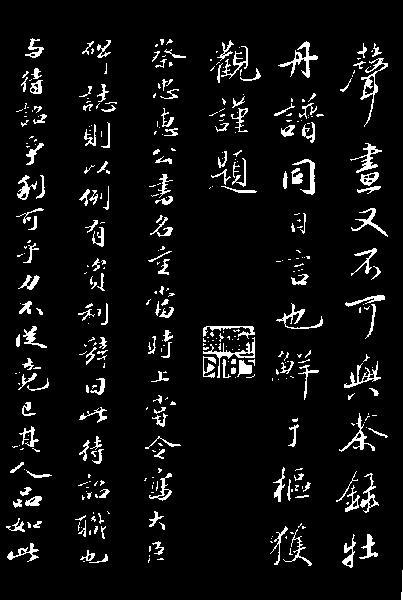 聲畫又不可與茶錄牡
丹譜同日言也鮮于樞獲
觀謹題
蔡忠惠公書名重當時上嘗令寫大臣
碑誌則以例有資利辭曰此待詔職也
与待詔爭利可乎力不從竟已其人品如此